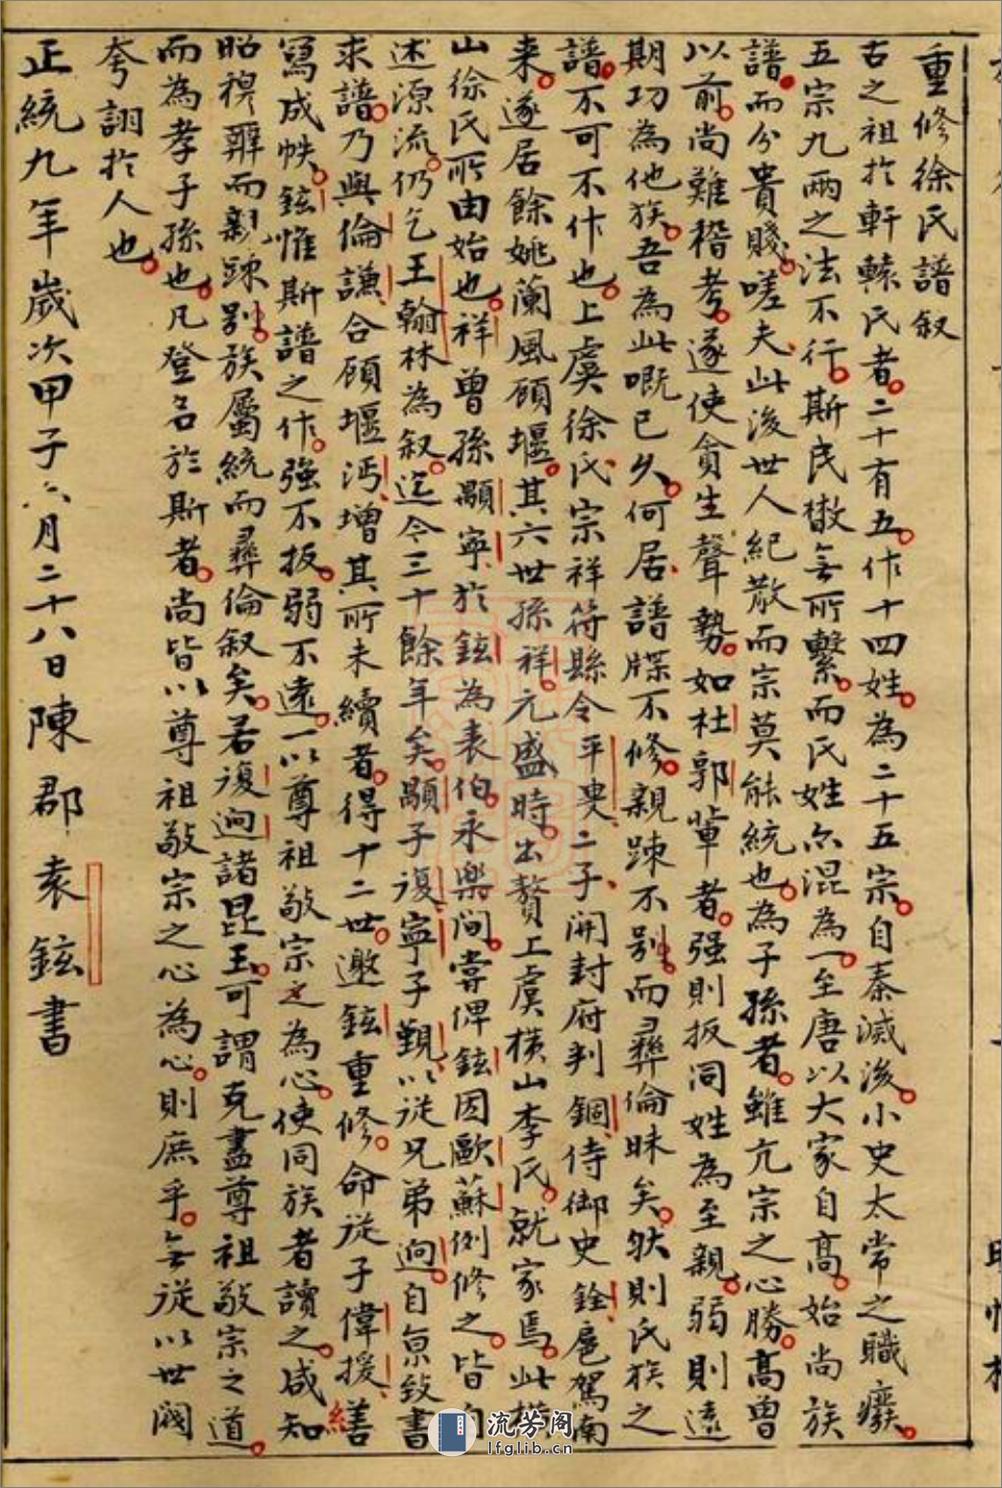 重修徐氏譜叙
古之祖於軒轅氏者二十有五作十四姓為二十五宗自秦滅後小史太常之職癈
五宗九兩之法不行斯民㪚無所繫而氏姓尒混為一至唐以大家自高始尚族
譜而分貴賤嗟夫此後世人紀散而宗莫能統也為子孫者雖亢宗之心勝高曾
以前尚難稽考遂使貪生聲勢如杜郭輩者强則扳同姓為至親弱則遠
期功為他族吾為此嘅已久何居譜牒不修親踈不别而彛倫昧矣肰則氏族之
譜不可不作也上虞徐氏宗祥符縣令平㬰二子開封府判錮侍御史銓扈駕南
来遂居餘姚蘭風顧堰其六世孫祥元盛時出贅上虞横山李氏就家焉此横
山徐氏所由始也祥曾孫顯寧於鉉為表伯永樂間嘗俾鉉因歐蘇例修之皆自
述源流仍乞王翰林為叙迄今三十餘年矣顯子復寧子觀以從兄弟逈自京致書
求譜乃與倫謙合顧堰沔增其所未續者得十二世邀鉉重修命從子偉援繕
寫成帙鉉惟斯譜之作强不扳弱不遠一以尊祖敬宗之為心使同族者讀之咸知
昭穆辨而親踈别族屬統而彛倫叙矣若復逈諸昆玉可謂克盡尊祖敬宗之道
而為孝子孫也凡登名於斯者尚皆以尊祖敬宗之心為心則庶乎無徒以世閥
夸詡於人也
正統九年歲次甲子六月二十八日陳郡袁鉉書
流芳阁
lfglib.cn